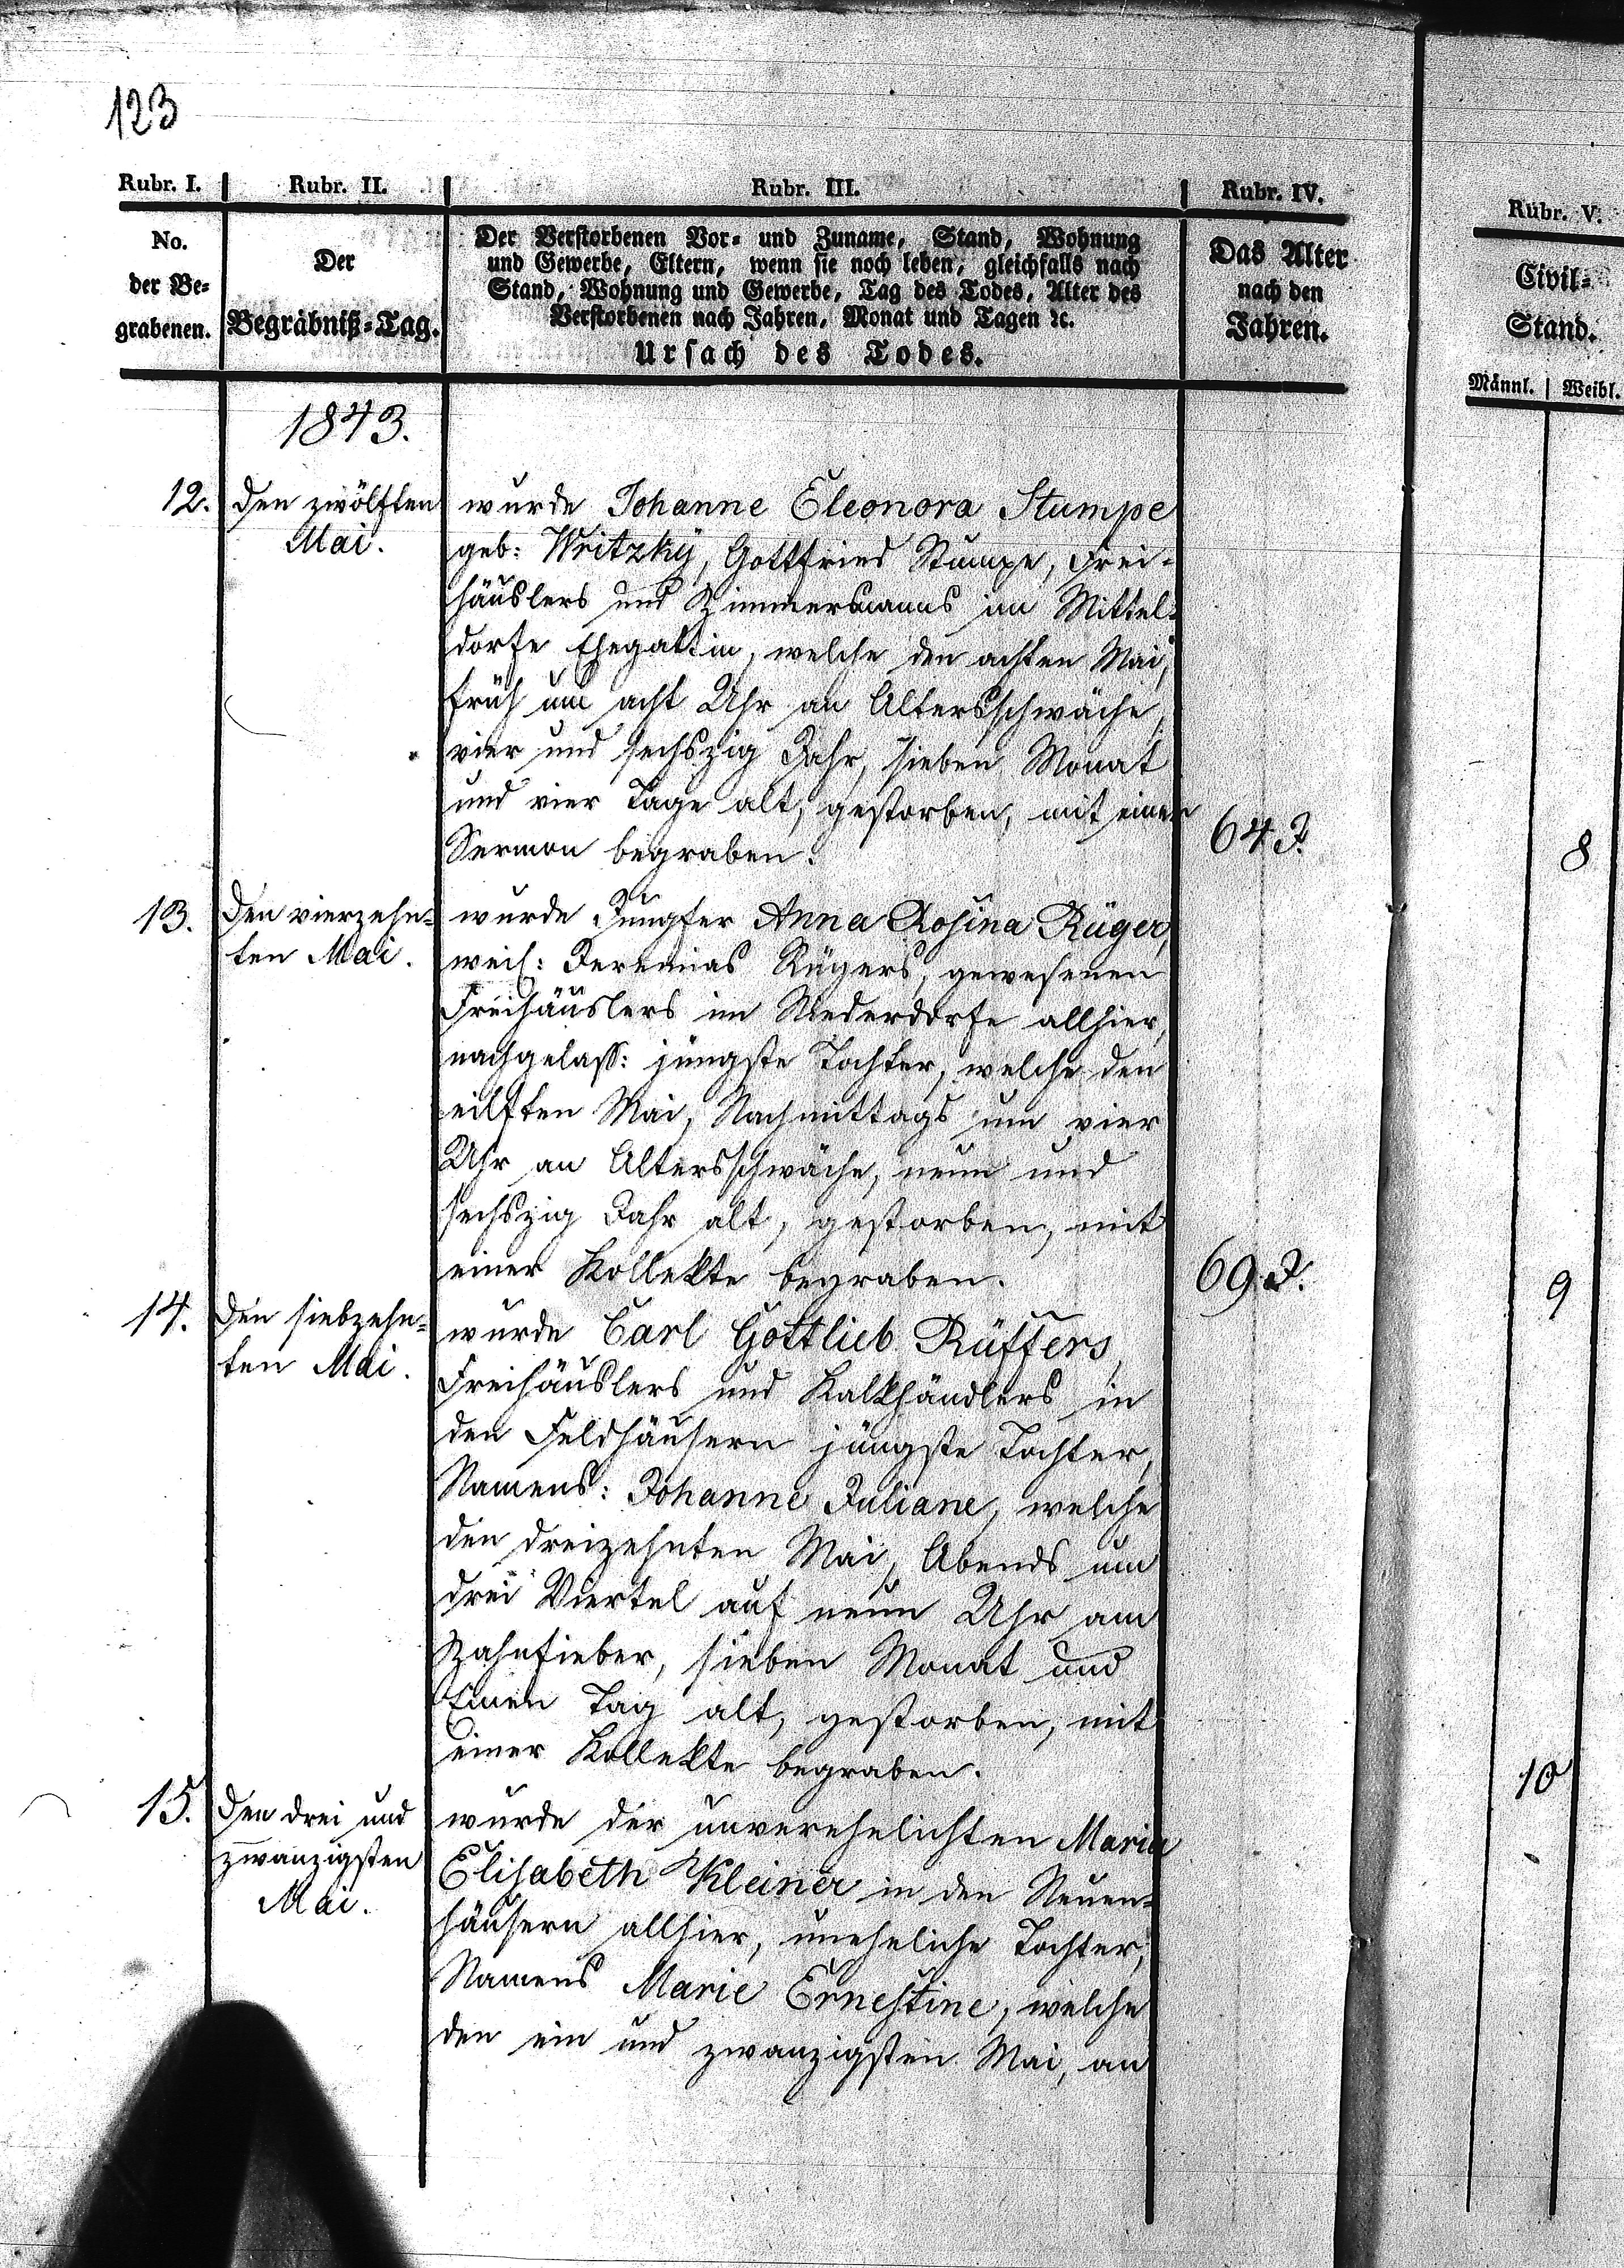 123
Rubr. I. Rubr. II. Rubr. III. Rubr. IV. Rubr. V.
No.
der Be-
grabenen.
Der
Begräbniß-Tag.
Der Verstorbenen Vor- und Zuname, Stand, Wohnung
und Gewerbe, Eltern, wenn sie noch leben, gleichfalls nach
Stand, Wohnung und Gewerbe, Tag des Todes, Alter des
Verstorbenen nach Jahren, Monat und Tagen ꝛc.
Ursach des Todes.
Das Alter
nach den
Jahren.
Civil-
Stand.
Männl. Weibl.
1843.
12.
den zwölften
Mai.
wurde Johanne Eleonora Stumpe
geb: Writzky, Gottfried Stumpe, Frei-
häuslers und Zimmermanns im Mittel-
dorfe Ehegattin, welche den achten Mai,
früh um acht Uhr an Altersschwäche,
vier und sechszig Jahr, sieben Monat
und vier Tage alt, gestorben, mit einer
Sermon begraben.
64 J.
8
13.
den vierzehn-
ten Mai.
wurde Jungfer Anna Rosina Rüger,
weil: Jeremias Rügers, gewesenen
Freihäuslers im Niederdorfe allhier,
nachgelass: jüngste Tochter, welche den
eilften Mai, Nachmittags um vier
Uhr an Altersschwäche, neun und
sechszig Jahr alt, gestorben, mit
einer Kollekte begraben.
69 J.
9
14.
den siebzehn-
ten Mai.
wurde Carl Gottlieb Rüffers,
Freihäuslers und Kalkhändlers in
den Feldhäusern jüngste Tochter,
Namens: Johanne Juliane, welche
den dreizehnten Mai, Abends um
drei Viertel auf neun Uhr am
Zahnfieber, sieben Monat und
Einen Tag alt, gestorben, mit
einer Kollekte begraben.
10
15.
den drei und
zwanzigsten
Mai.
wurde der unverehelichten Maria
Elisabeth Kleiner in den Neuen-
häusern allhier, uneheliche Tochter,
Namens Marie Ernestine, welche
den ein und zwanzigsten Mai, an